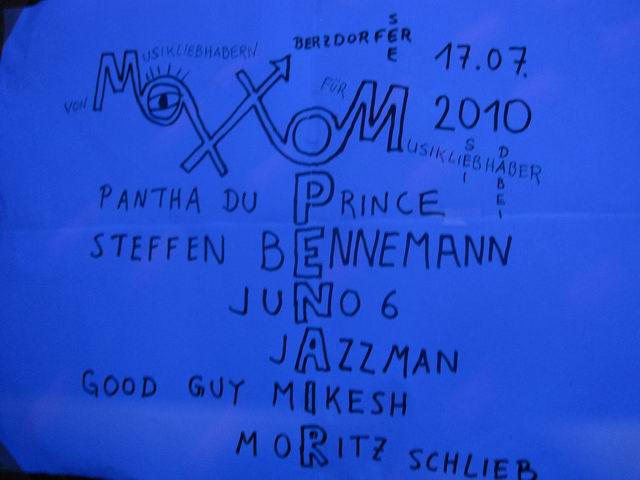 VON MUSIKLIEBHABERN FÜR MUSIKLIEBHABER
MOXXOM
BERZDORFER SEE
17.07.
2010
SEI DABEI
PANTHA DU PRINCE
STEFFEN BENNEMANN
JUNO 6
JAZZMAN
GOOD GUY MIKESH
MORITZ SCHLIEB